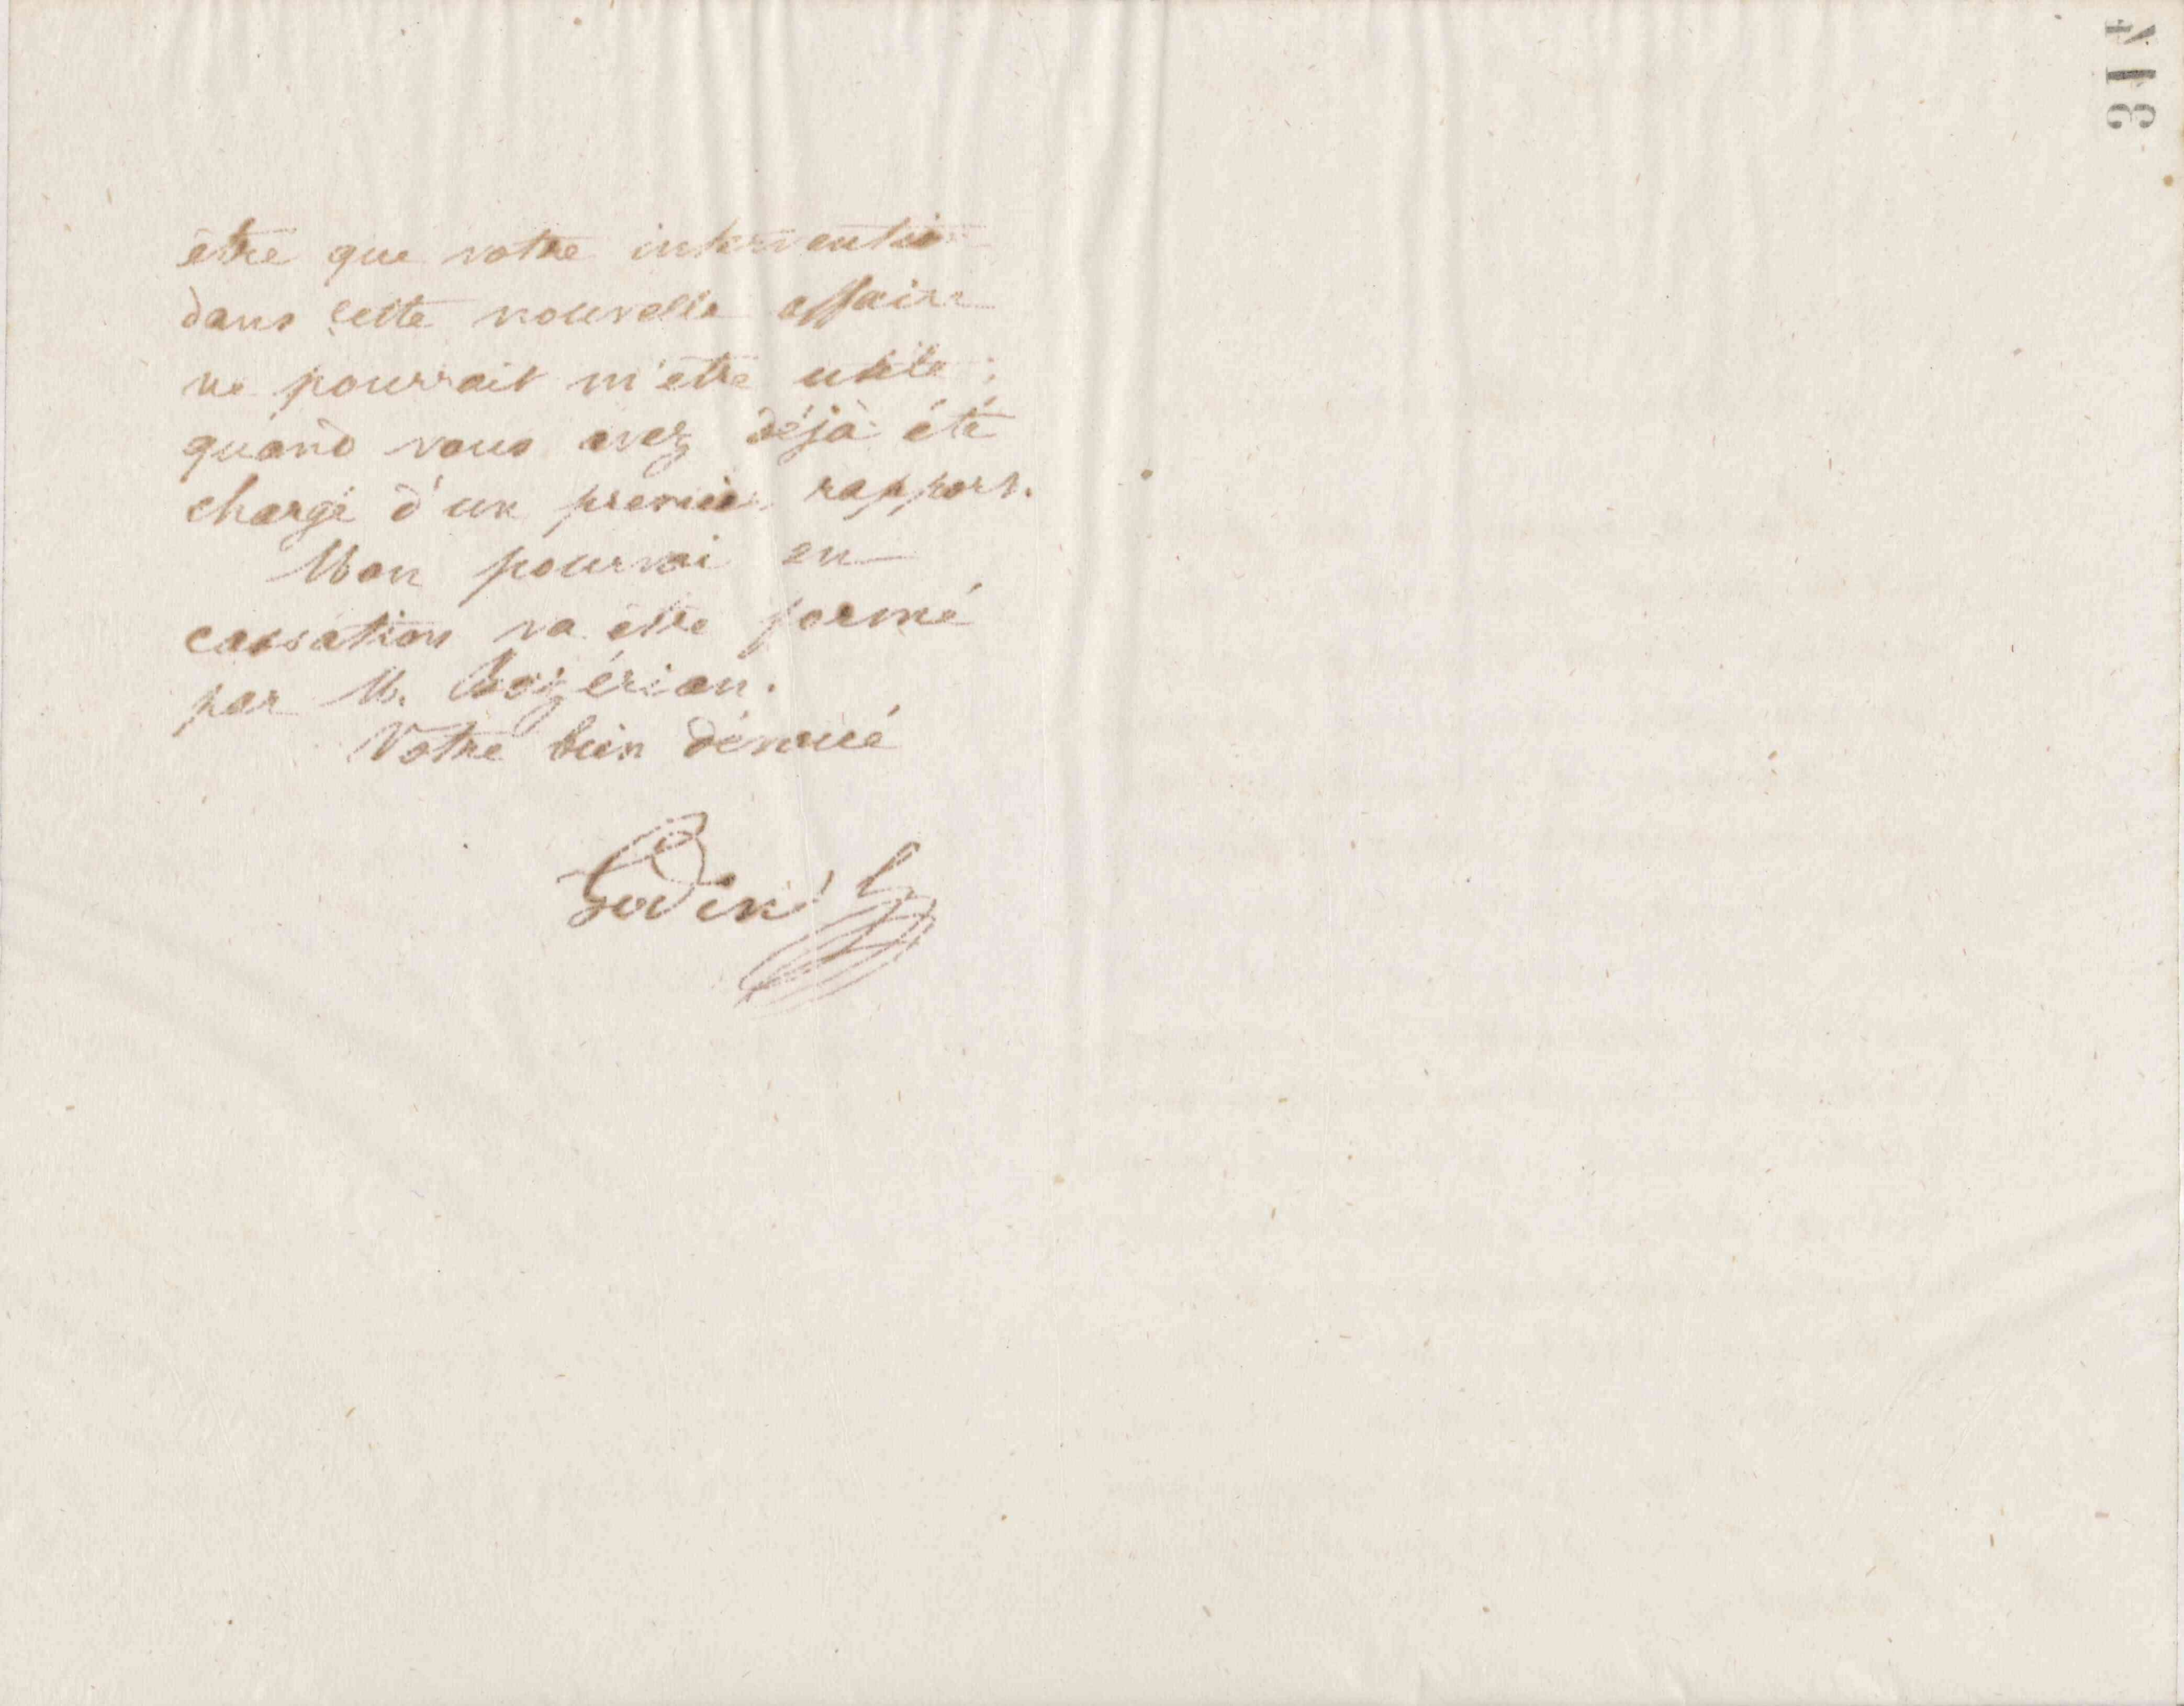 être que votre intervention
dans cette nouvelle affaire
ne pourrait m'être utile ;
quand vous avez déjà été
chargé d'un premier rapport.
Mon pourvoi en
cassation va être formé
par M. Bozérian.
Votre bien dévoué
Godin